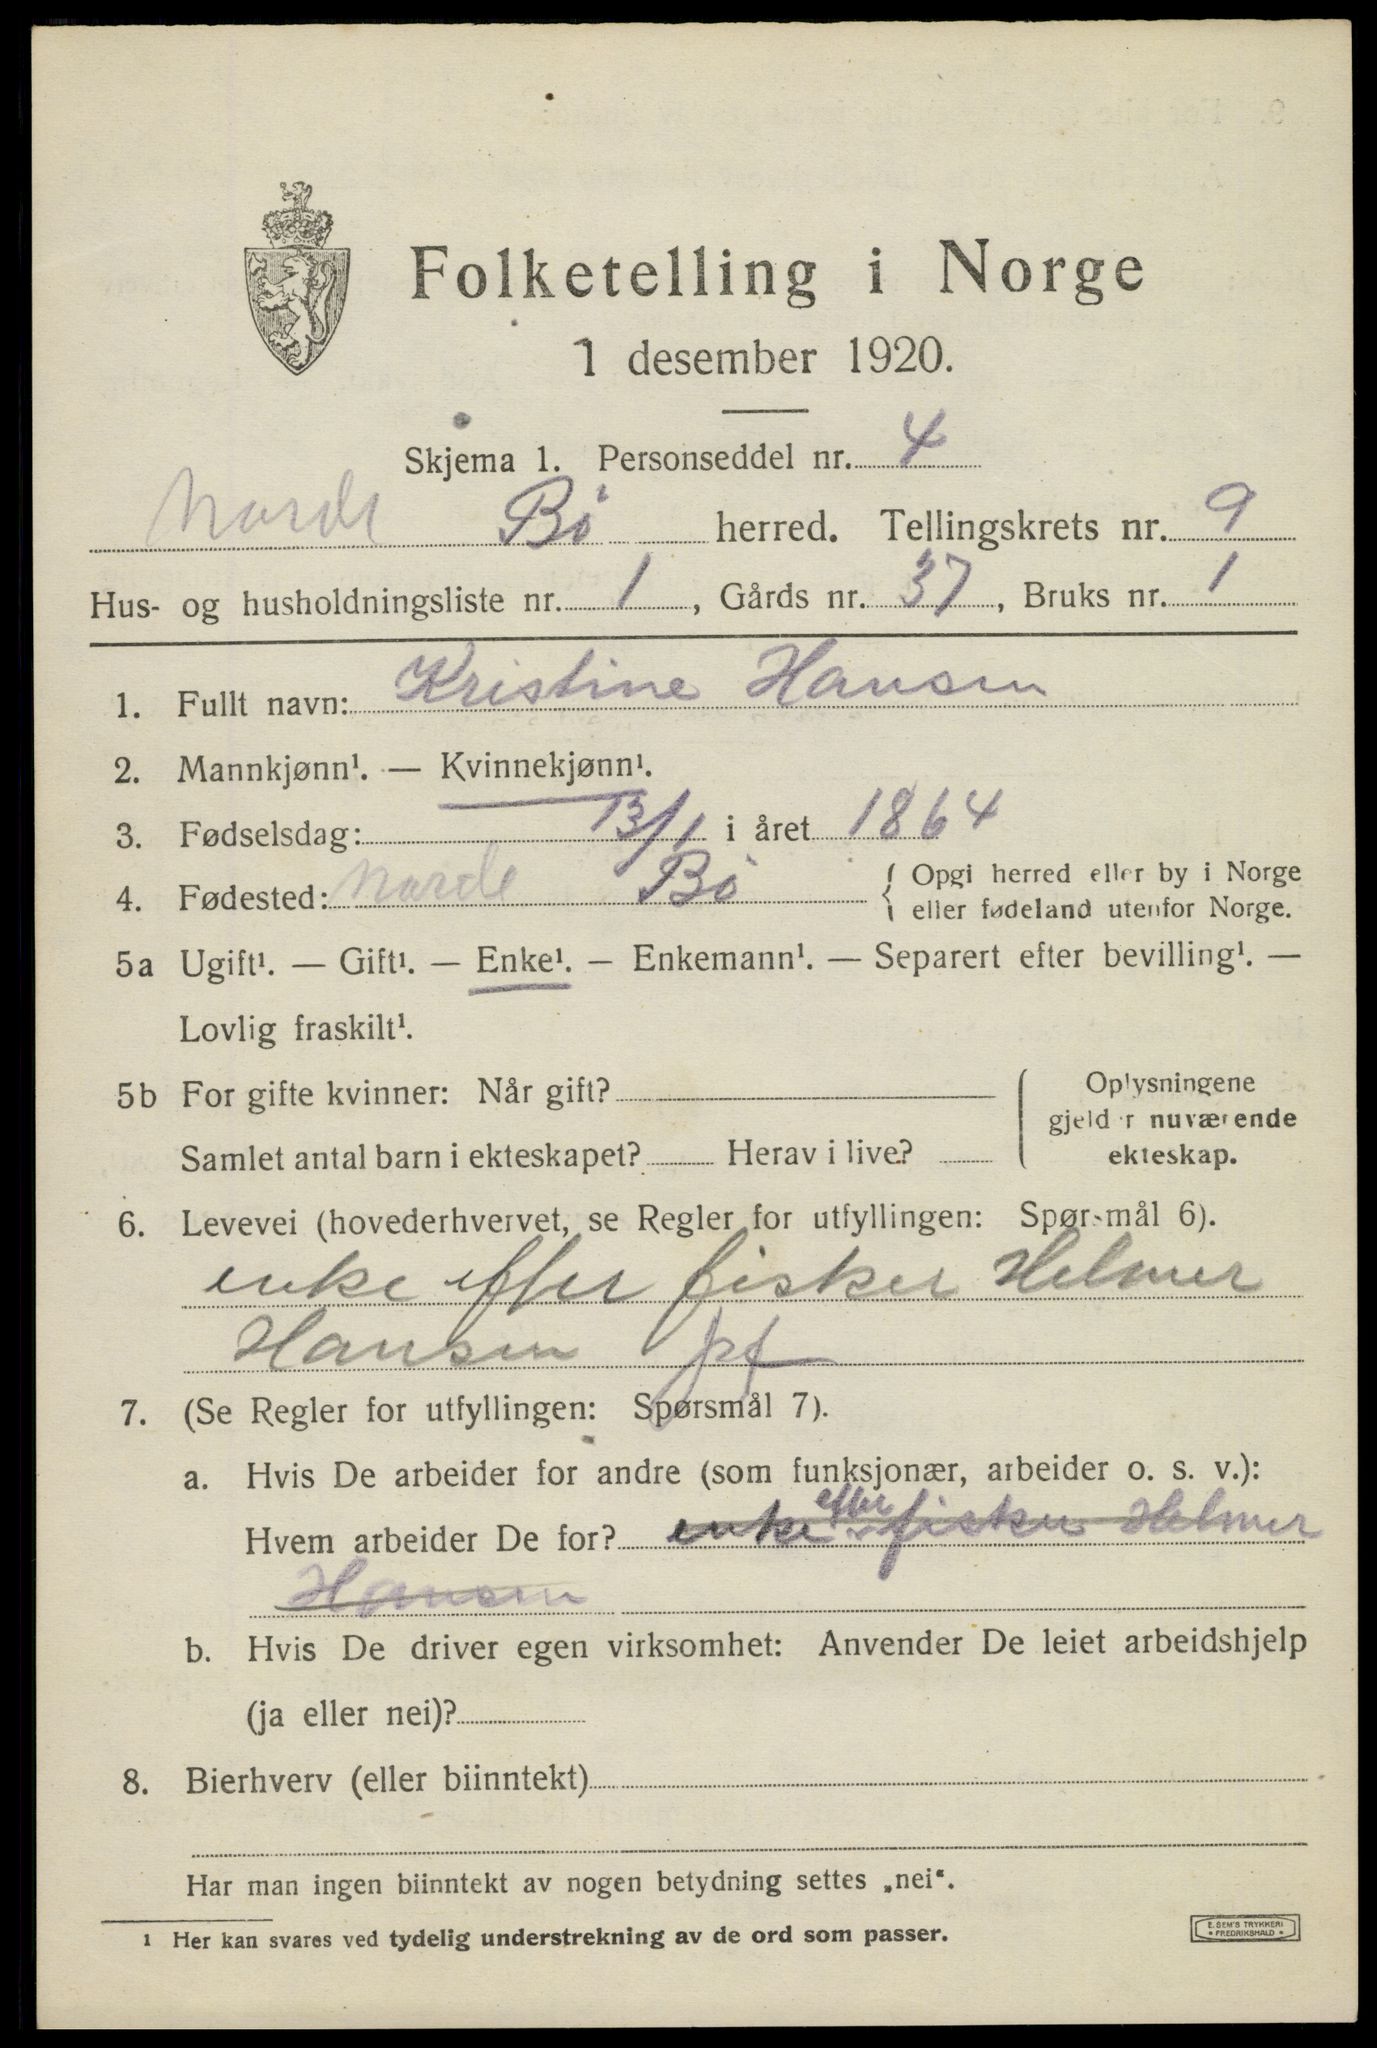 Folketelling i Norge
1 desember 1920.
Skjema 1. Personseddel nr. 4
Bø herred. Tellingskrets nr. 9
Hus- og husholdningsliste nr. 1, Gårds nr. 37, Bruks nr. 1
1. Fullt navn: Kristine Hansen
2. Mannkjønn¹. — Kvinnekjønn¹.
3. Fødselsdag: 13/1 i året 1864
4. Fødested: Bø { Opgi herred eller by i Norge
eller fødeland utenfor Norge.
5a Ugift¹. — Gift¹. — Enke¹. — Enkemann¹. — Separert efter bevilling¹. —
Lovlig fraskilt¹.
5b For gifte kvinner: Når gift?
Samlet antal barn i ekteskapet? Herav i live?
Oplysningene
gjelder nuværende
ekteskap.
6. Levevei (hovederhvervet, se Regler for utfyllingen: Spørsmål 6).
enke efter fisker Helmer
Hansen
7. (Se Regler for utfyllingen: Spørsmål 7).
a. Hvis De arbeider for andre (som funksjonær, arbeider o. s. v.):
Hvem arbeider De for? enke efter fisker Helmer
Hansen
b. Hvis De driver egen virksomhet: Anvender De leiet arbeidshjelp
(ja eller nei)?
8. Bierhverv (eller biinntekt)
Har man ingen biinntekt av nogen betydning settes „nei“.
¹ Her kan svares ved tydelig understrekning av de ord som passer.
E. SEM'S TRYKKERI
FREDRIKSHALD